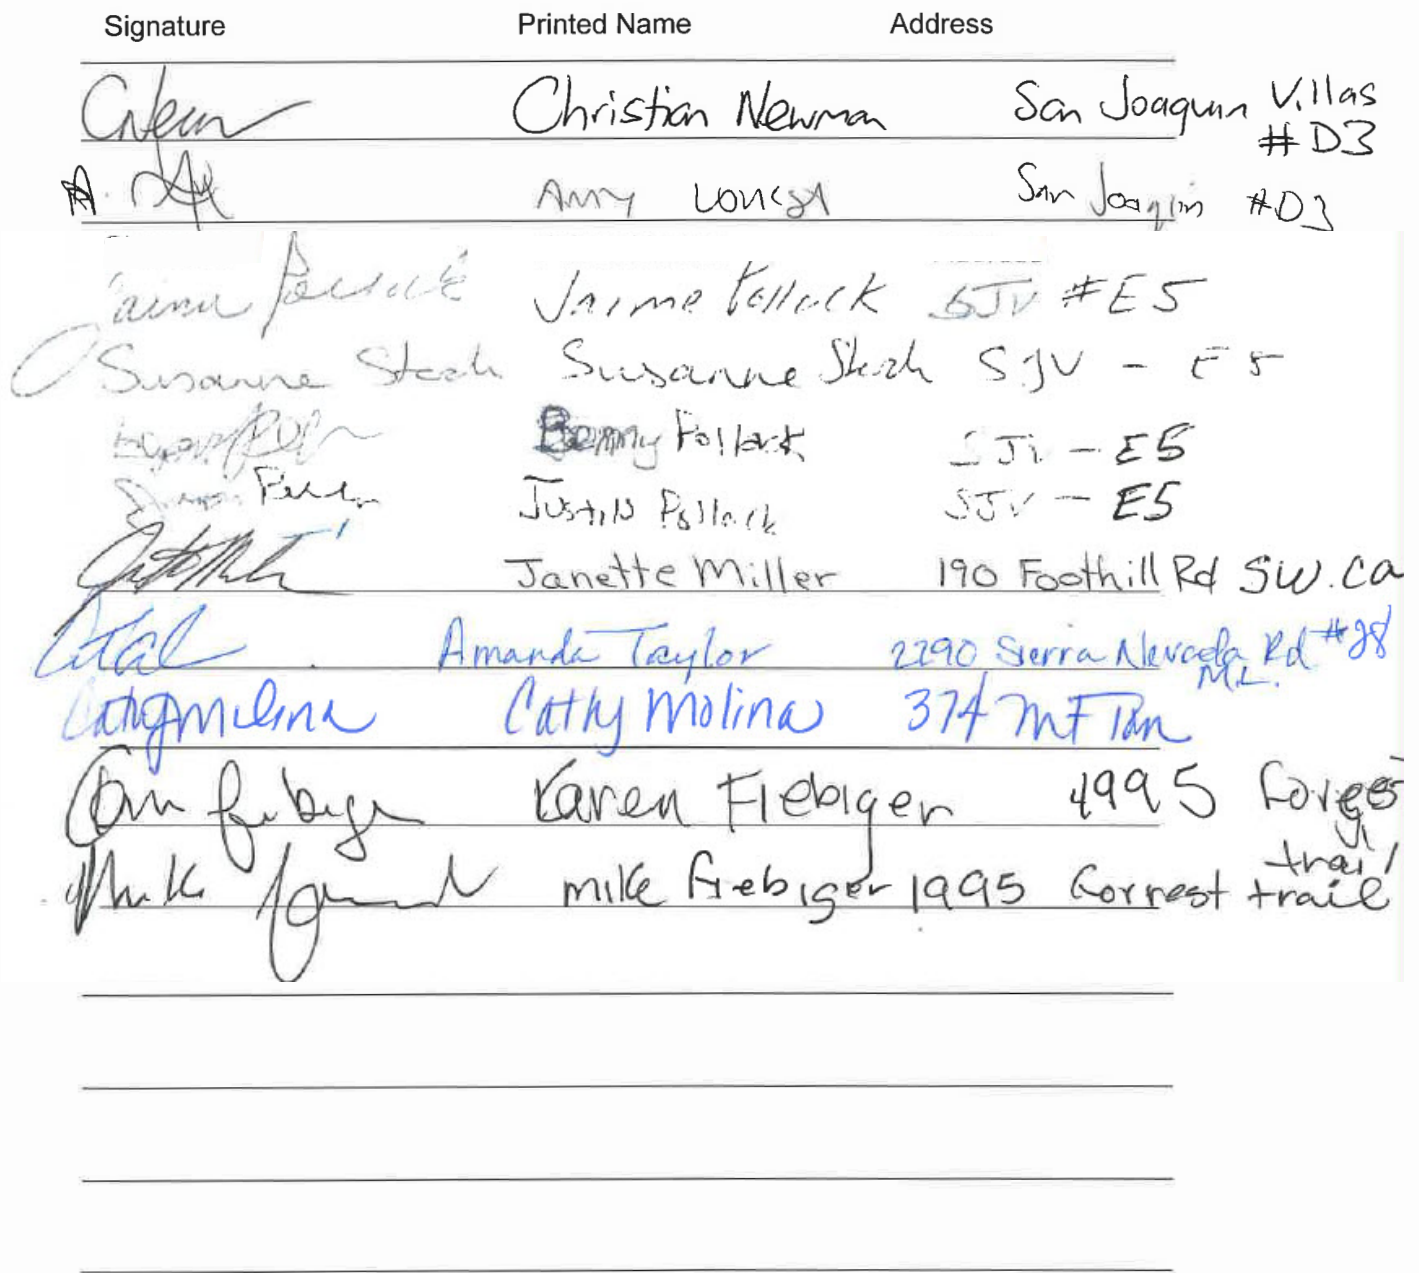 Signature Printed Name Address
Christian Newman San Joaquin Villas #D3
A. Amy San Joaqin #D3
Jaime Pollock SJV #E5
Susanne Susanne SJV - E5
Benny Pollock SJV - E5
Justin Pollock SJV - E5
Janette Miller 190 Foothill Rd SW. Ca
Amanda Taylor 2290 Sierra Nevada Rd #28 M.L.
Cathy Molina Cathy Molina 374 MT
Karen Fiebiger 1995 trail
Mike mike Fiebiger 1995 Forrest trail